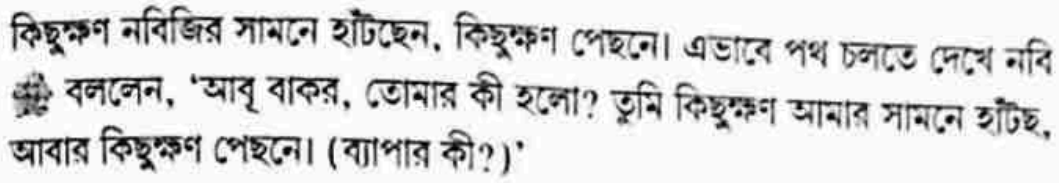 কিছুক্ষণ নবিজির সামনে হাঁটছেন, কিছুক্ষণ পেছনে। এভাবে পথ চলতে দেখে নবি
ﷺ বললেন, ‘আবূ বাকর, তোমার কী হলো? তুমি কিছুক্ষণ আমার সামনে হাঁটছ,
আবার কিছুক্ষণ পেছনে। (ব্যাপার কী?)’